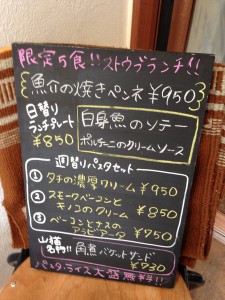 限定5食!!ストウブランチ!!
魚介の焼きペンネ ¥950
日替り
ランチプレート
¥850
白身魚のソテー
ポルチーニのクリームソース
週替りパスタセット
① タチの濃厚クリーム ¥950
② スモークベーコンと
キノコのクリーム ¥850
③ ベーコンとナスの
アラビアータ ¥750
山猫
名門!! 角煮バケットサンド
¥730
パスタ、ライス大盛無料!!